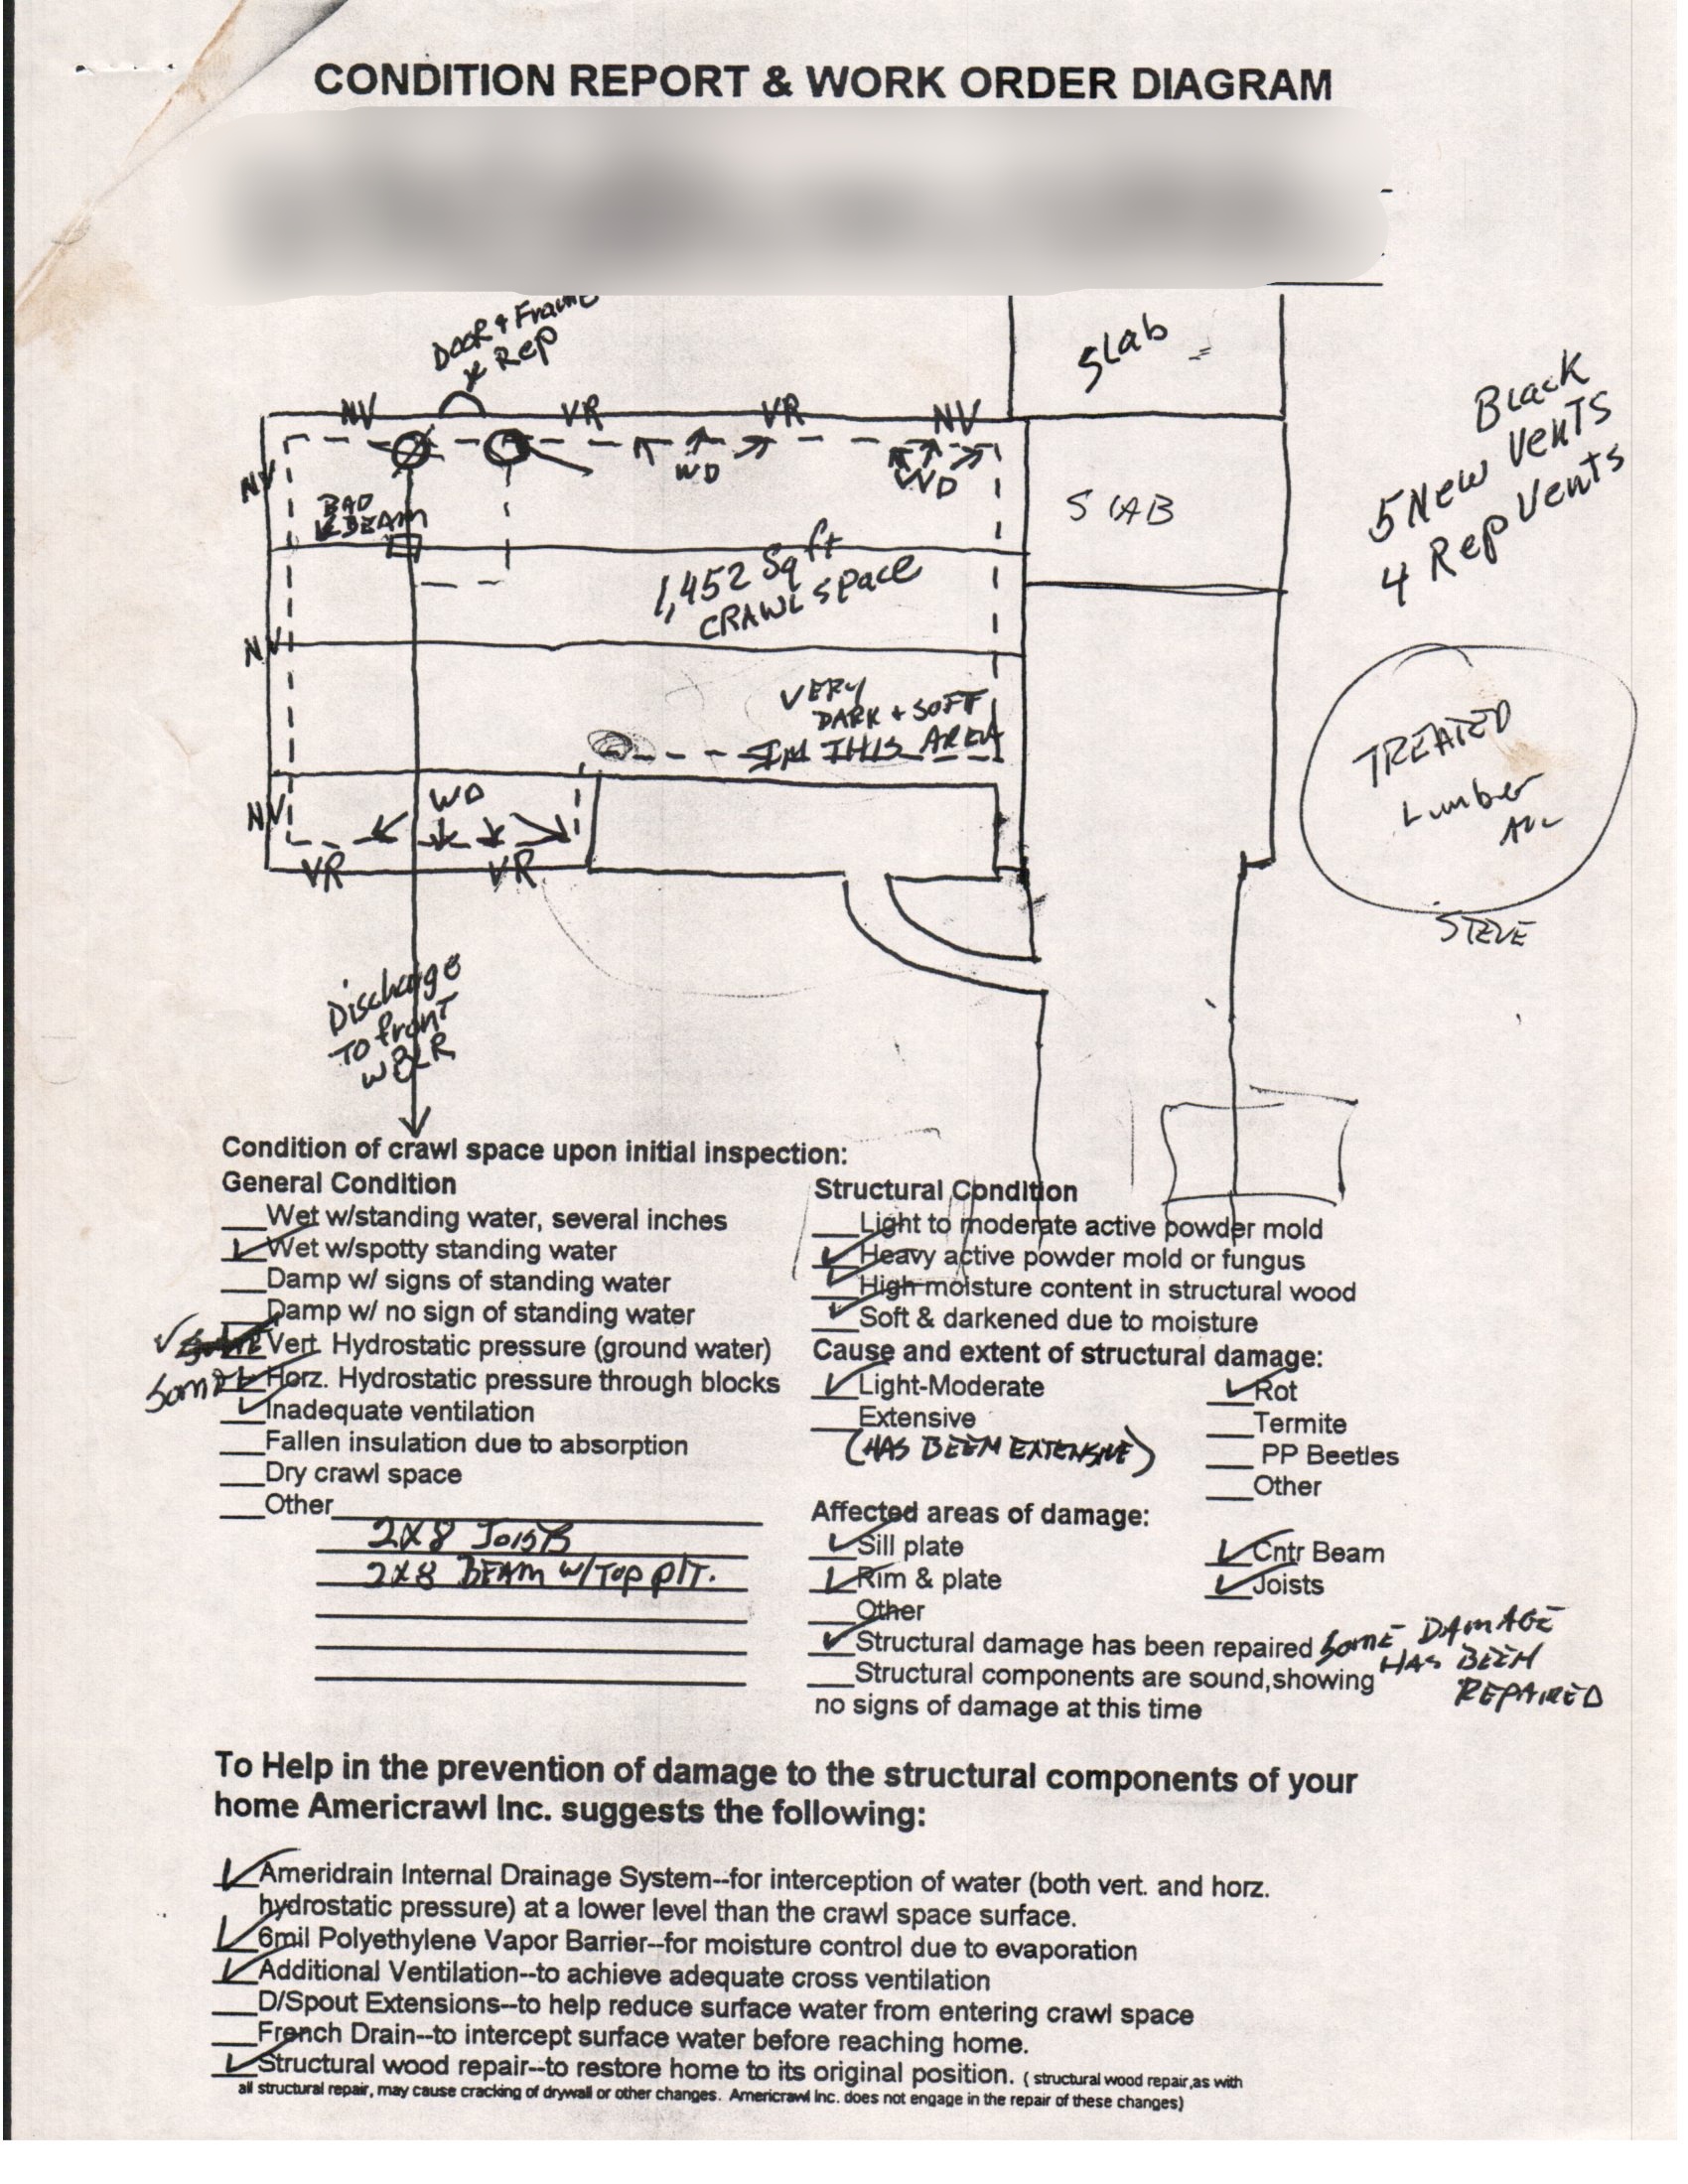 CONDITION REPORT & WORK ORDER DIAGRAM
Door & Frame
Rep
Slab
NV
VR
VR
NV
Black
Vents
5 New Vents
4 Rep Vents
NV
WD
WD
BAD
BEAM
SLAB
1,452 Sq ft
CRAWL space
NV
VERY
DARK + SOFT
IN THIS AREA
TREATED
Lumber
STEVE
NV
WD
VR
VR
Discharge
To front
Condition of crawl space upon initial inspection:
General Condition
Wet w/standing water, several inches
✓ Wet w/spotty standing water
Damp w/ signs of standing water
Damp w/ no sign of standing water
✓ Vert. Hydrostatic pressure (ground water)
Some ✓ Horz. Hydrostatic pressure through blocks
✓ Inadequate ventilation
Fallen insulation due to absorption
Dry crawl space
Other
2x8 Joists
2x8 BEAM w/TOP PlT.
Structural Condition
Light to moderate active powder mold
✓ Heavy active powder mold or fungus
✓ High moisture content in structural wood
✓ Soft & darkened due to moisture
Cause and extent of structural damage:
✓ Light-Moderate ✓ Rot
Extensive Termite
(HAS BEEN EXTENSIVE) PP Beetles
Other
Affected areas of damage:
✓ Sill plate ✓ Cntr Beam
✓ Rim & plate ✓ Joists
Other
✓ Structural damage has been repaired SOME DAMAGE
HAS BEEN
REPAIRED
Structural components are sound,showing
no signs of damage at this time
To Help in the prevention of damage to the structural components of your
home Americrawl Inc. suggests the following:
✓ Ameridrain Internal Drainage System--for interception of water (both vert. and horz.
hydrostatic pressure) at a lower level than the crawl space surface.
✓ 6mil Polyethylene Vapor Barrier--for moisture control due to evaporation
✓ Additional Ventilation--to achieve adequate cross ventilation
D/Spout Extensions--to help reduce surface water from entering crawl space
French Drain--to intercept surface water before reaching home.
✓ Structural wood repair--to restore home to its original position. ( structural wood repair,as with
all structural repair, may cause cracking of drywall or other changes. Americrawl Inc. does not engage in the repair of these changes)